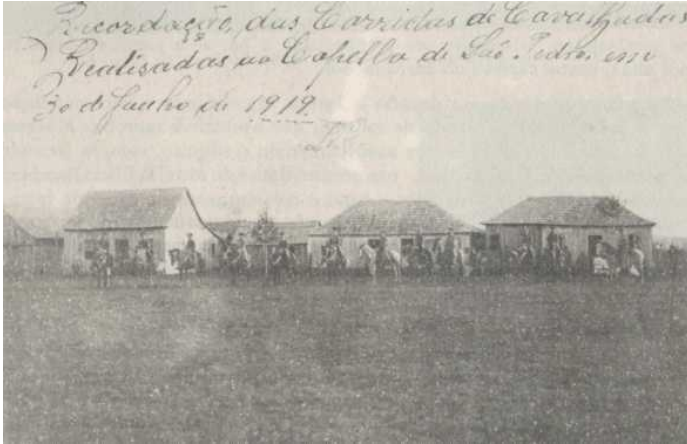 Recordação das Corridas de Cavalhadas
Realisadas na Capella de São Pedro em
30 de Junho de 1919.